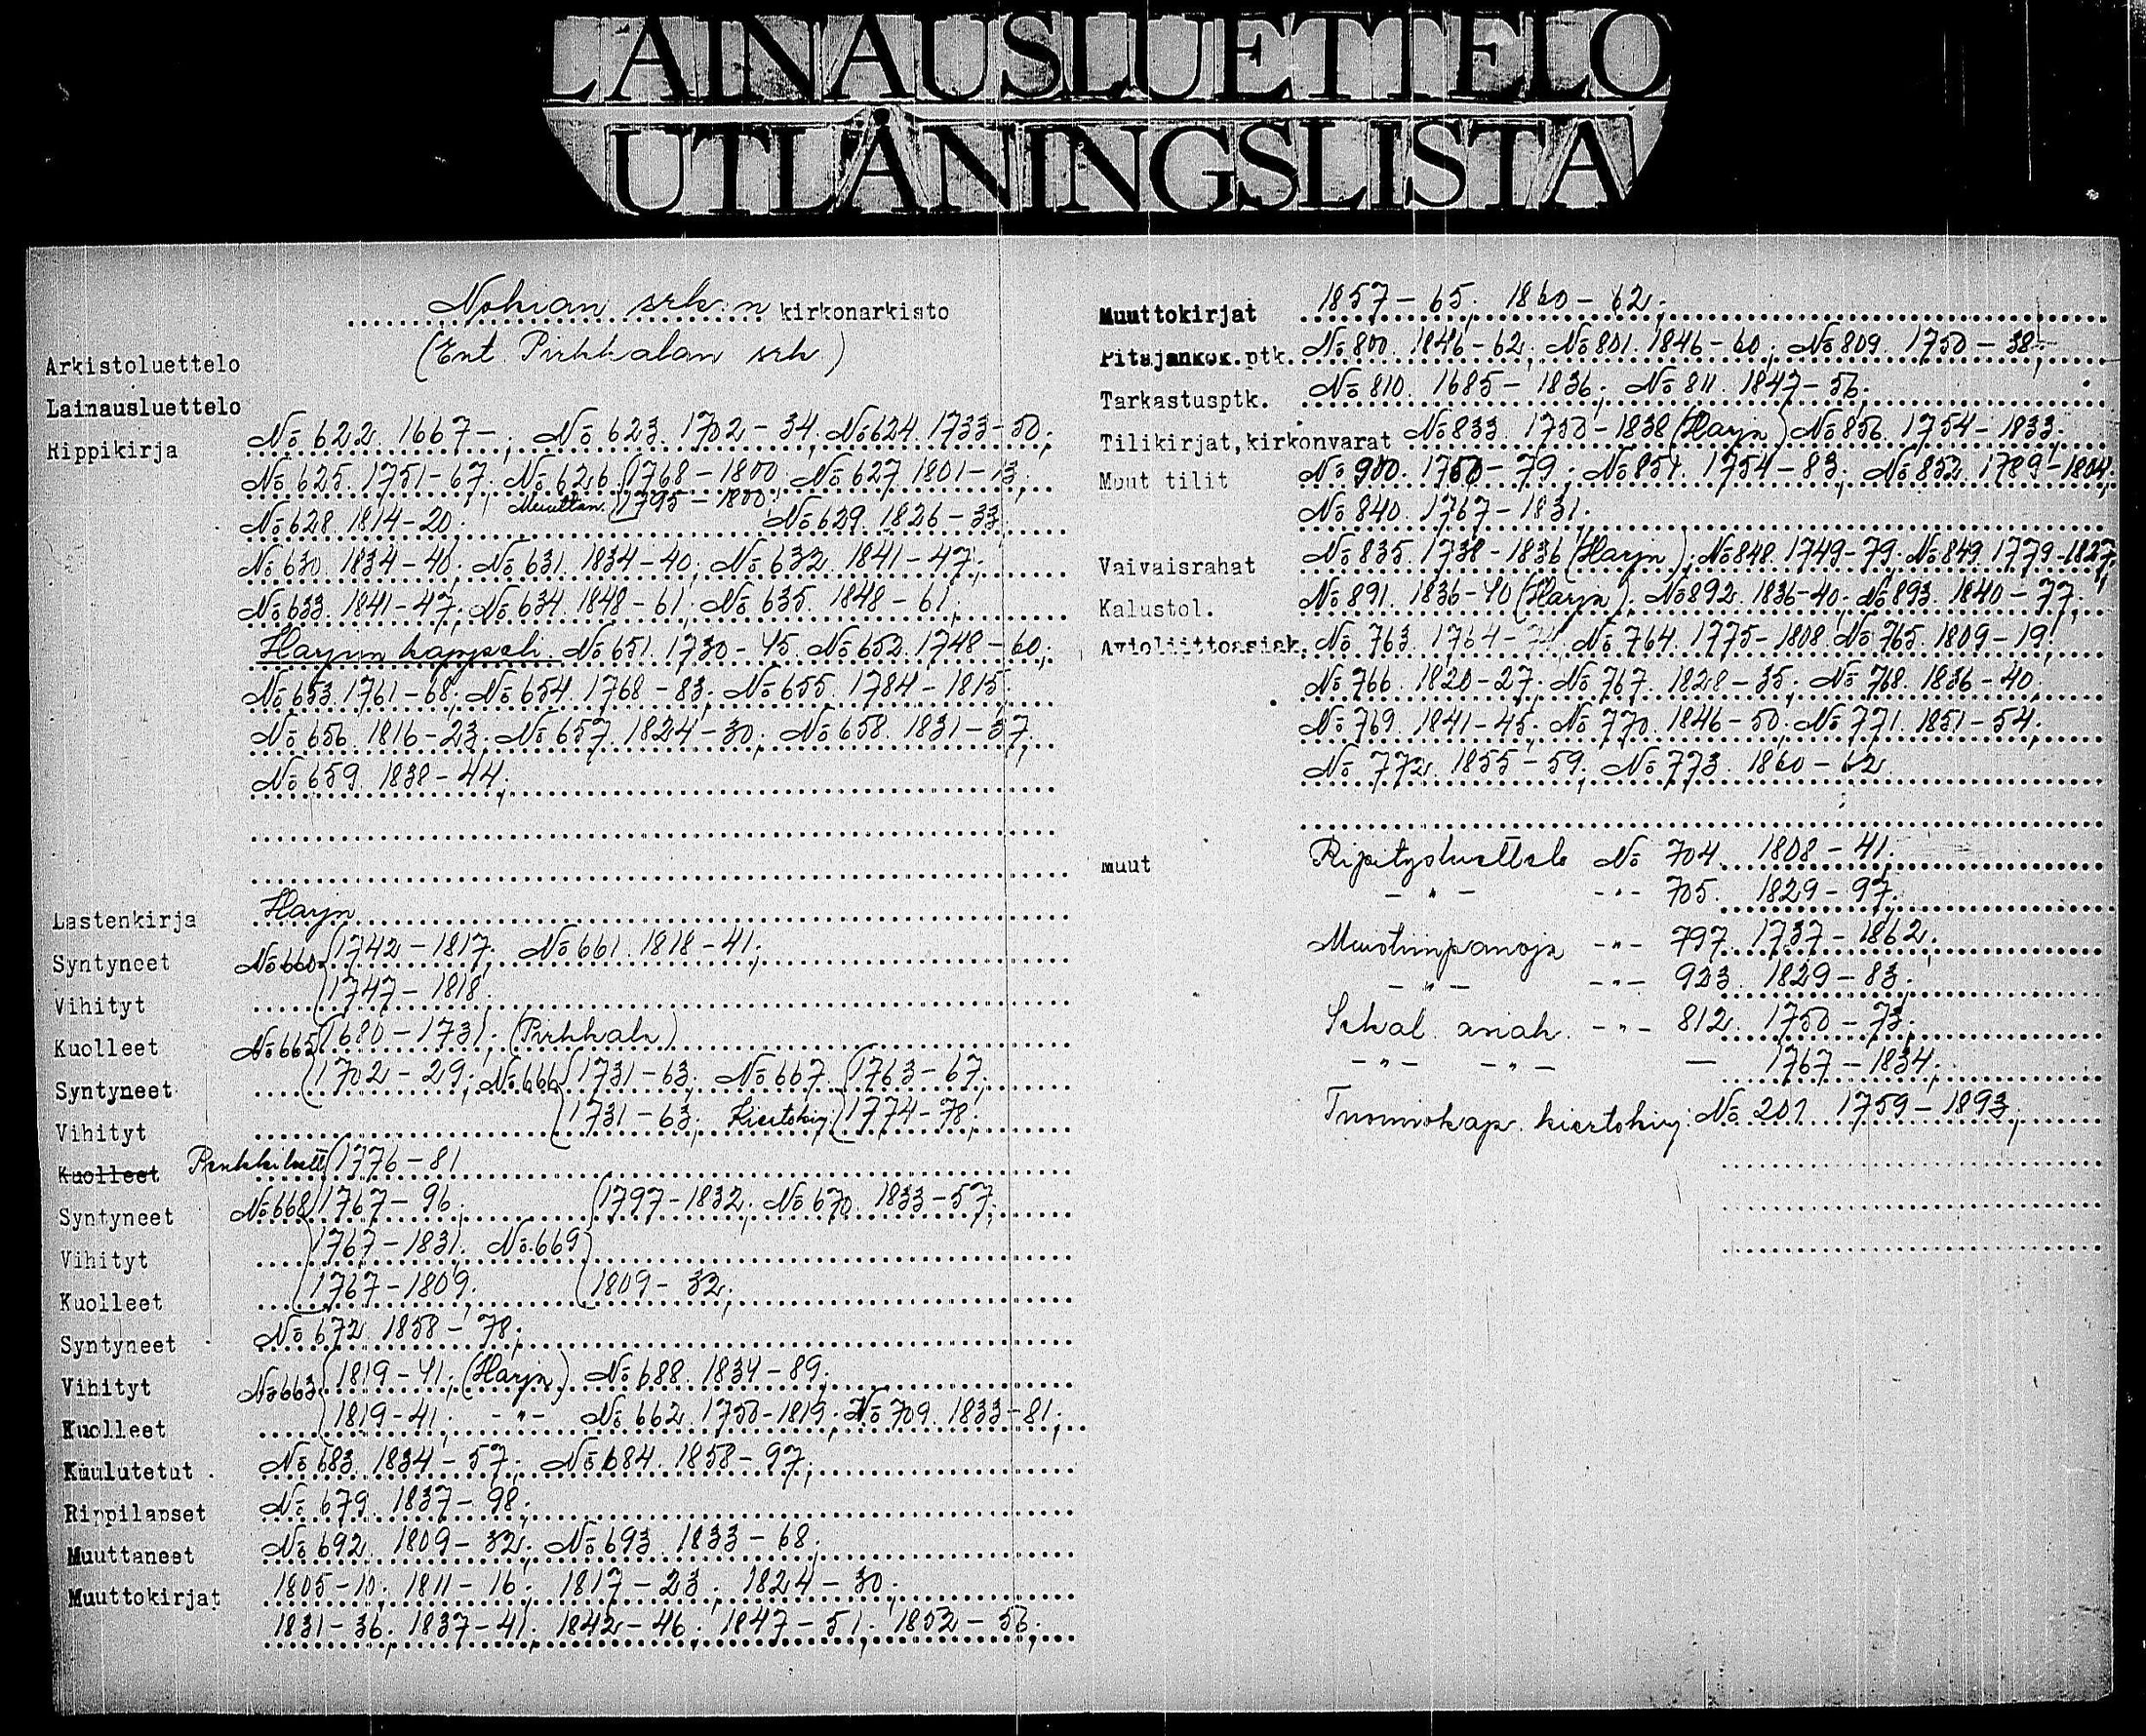 LAINAUSLUETTELO
UTLÅNINGSLISTA
Nokian srk:n kirkonarkisto
(Ent. Pirkkalan srk)
Arkistoluettelo
Lainausluettelo
Rippikirja No 622. 1667-; No 623. 1702-34; No 624. 1733-50;
No 625. 1751-67; No 626 (1768-1800; No 627. 1801-13;
Muuttan. (1795-1800;
No 628. 1814-20; No 629. 1826-33
No 630. 1834-40; No 631. 1834-40; No 632. 1841-47;
No 633. 1841-47; No 634. 1848-61; No 635. 1848-61;
Harjun kappeli. No 651. 1730-45. No 652. 1748-60;
No 653. 1761-68; No 654. 1768-83; No 655. 1784-1815;
No 656. 1816-23; No 657. 1824-30; No 658. 1831-37;
No 659. 1838-44;
Lastenkirja Harju
Syntyneet No 660 (1742-1817; No 661. 1818-41;
Vihityt (1747-1818;
Kuolleet No 665 (1680-1731; (Pirkkala)
Syntyneet (1702-29; No 666 (1731-63; No 667. (1763-67;
Vihityt (1731-63; Kiertokirj. (1774-78;
Kuolleet Penkkiluett (1776-81
Syntyneet No 668 (1767-96; (1797-1832; No 670. 1833-57;
Vihityt (1767-1831; No 669
Kuolleet (1767-1809; (1809-32;
Syntyneet No 672. 1858-78;
Vihityt No 663 (1819-41; (Harju) No 688. 1834-89;
Kuolleet (1819-41; -"- No 662. 1750-1819; No 709. 1833-81;
Kuulutetut No 683. 1834-57; No 684. 1858-97;
Rippilapset No 679. 1837-98;
Muuttaneet No 692. 1809-32; No 693. 1833-68;
Muuttokirjat 1805-10; 1811-16; 1817-23; 1824-30;
1831-36; 1837-41; 1842-46; 1847-51; 1852-56;
Muuttokirjat 1857-65; 1860-62;
Pitäjänkok.ptk. No 800. 1846-62; No 801. 1846-60; No 809. 1750-38;
Tarkastusptk. No 810. 1685-1836; No 811. 1847-56;
Tilikirjat,kirkonvarat No 833. 1750-1838 (Harju) No 856. 1754-1833;
Muut tilit No 900. 1750-79; No 851. 1754-83; No 852. 1789-1804;
No 840. 1767-1831;
Vaivaisrahat No 835. 1738-1836 (Harju); No 848. 1749-79; No 849. 1779-1827;
Kalustol. No 891. 1836-40 (Harju); No 892. 1836-40; No 893. 1840-77;
Avioliittoasiak. No 763. 1764-74; No 764. 1775-1808. No 765. 1809-19;
No 766. 1820-27; No 767. 1828-35; No 768. 1836-40;
No 769. 1841-45; No 770. 1846-50; No 771. 1851-54;
No 772. 1855-59; No 773. 1860-62
muut Ripitysluettelo No 704. 1808-41;
-"- -"- 705. 1829-97;
Muistiinpanoja -"- 797. 1737-1862;
-"- -"- 923. 1829-83;
Sekal. asiak. -"- 812. 1750-73;
-"- -"- — 1767-1834;
Tuomiokap. kiertokirj: No 201. 1759-1893;